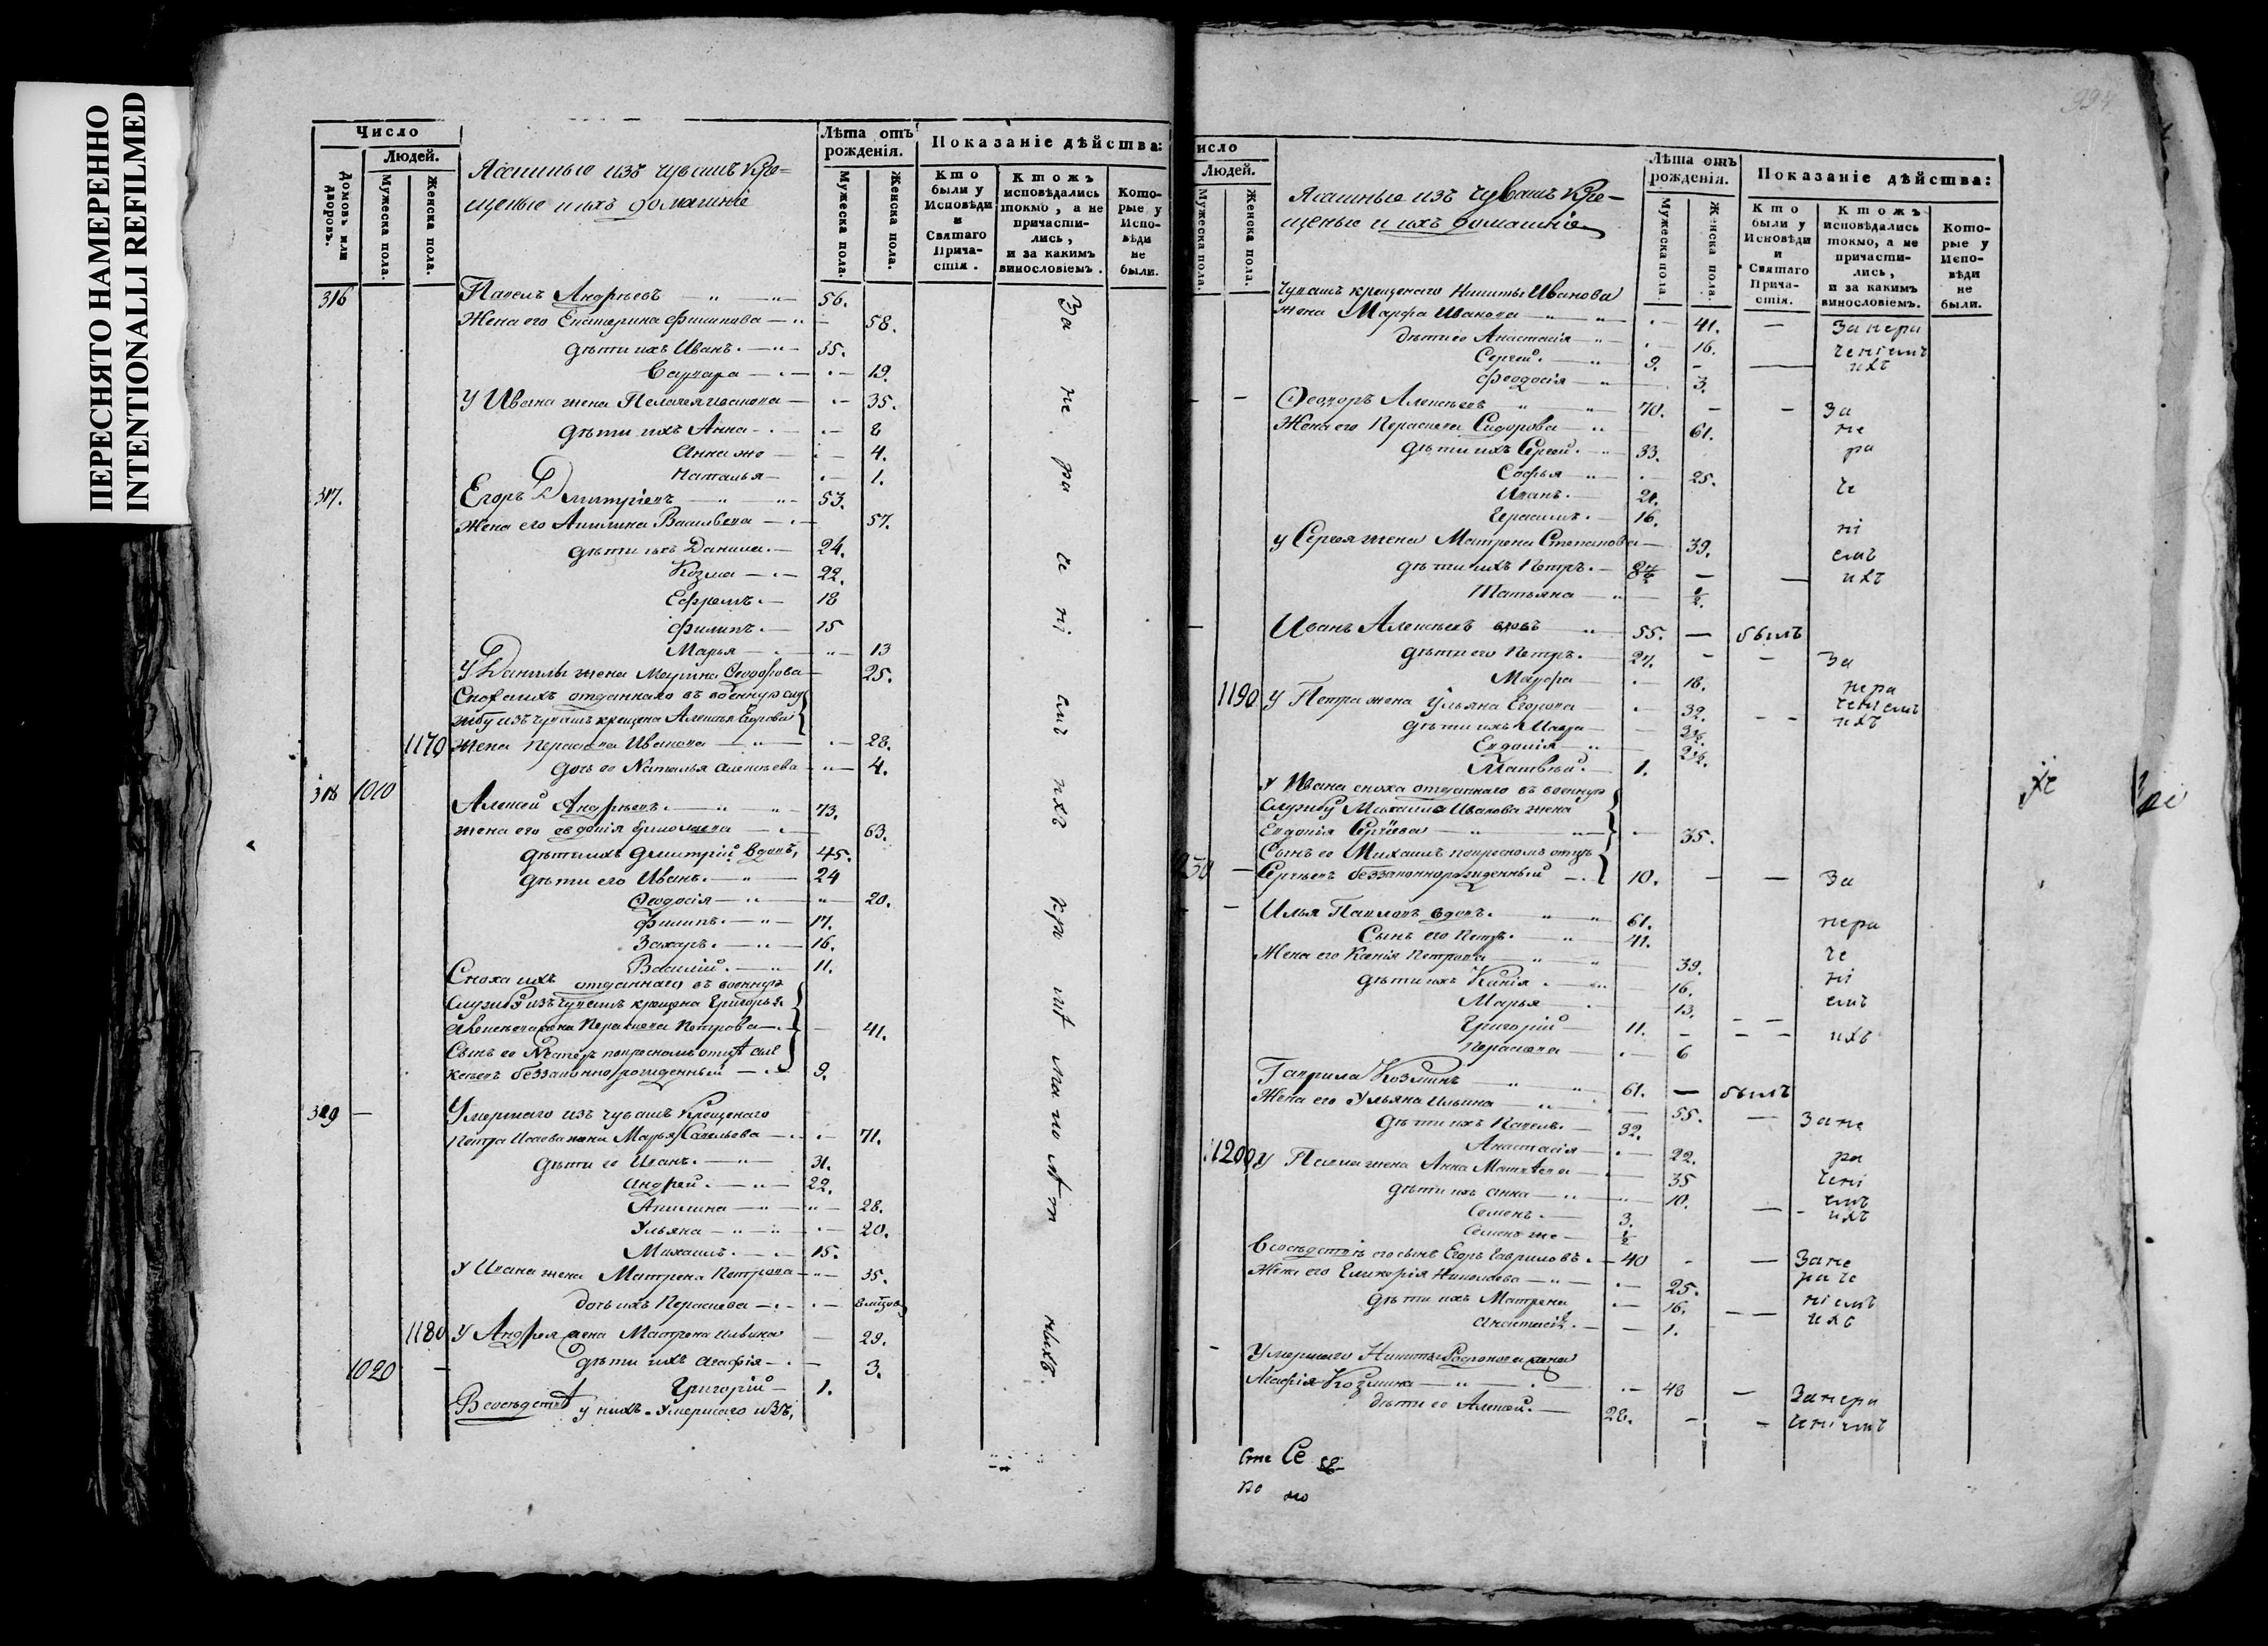 ПЕРЕСНЯТО НАМЕРЕННО
INTENTIONALLI REFILMED
Число
Людей.
Домовъ или дворовъ.
Мужеска пола.
Женска пола.
Ясашные изъ чувашъ Кре-
щеные и ихъ домашніе
Лѣта отъ рожденія.
Мужеска пола.
Женска пола.
Показаніе дѣйства:
Кто были у Исповѣди и Святаго Прича-стія.
Ктожъ исповѣдались токмо, а не причасти-лись, и за какимъ винословіемъ.
Кото-рые у Испо-вѣди не были.
316 Павелъ Андреевъ 56.
Жена его Екатерина Филипова 58.
дѣти ихъ Иванъ. 35.
Варвара 19.
У Ивана жена Пелагея Иванова 35.
дѣти ихъ Анна 8
Анна же 4.
Наталья 1.
317. Егоръ Дмитріевъ 53.
Жена его Акилина Васильева 57.
дѣти ихъ Данила. 24.
Козма 22.
Ефремъ. 18
Филипъ. 15
Марья 13
У Данилы жена Марина Ѳеодорова 25.
Сноха ихъ отданнаго въ военную слу
жбу изъ чувашъ крещена Алексея Егорова
1170 жена Пераскева Иванова 28.
дочь ее Наталья Алексеева 4.
318 1010 Алексей Андреевъ. 73.
жена его Евдокія Ермолаева 63.
дѣти ихъ Дмитрій вдовъ, 45.
дѣти его Иванъ. 24
Ѳеодосія 20.
Филипъ. 17.
Захаръ. 16.
Василій. 11.
Сноха ихъ отданнаго въ военную
Службу изъ чувашъ крещена Григорья
Алексеева жена Пераскева Петрова 41.
Сынъ ее Нестеръ по кресномъ отцѣ Але
ксеевъ беззаконнорожденный 9.
319 Умершаго изъ чувашъ Крещенаго
Петра Исаева жена Марья Савельева 71.
дѣти ее Иванъ. 31.
Андрей. 22.
Акилина 28.
Ульяна 20.
Михаилъ. 15.
У Ивана жена Матрена Петрова 35.
дочь ихъ Пераскева
1180 У Андрея жена Матрена Ильина 29.
дѣти ихъ Агафія 3.
1020 Григорій 1.
В соседствѣ у нихъ. Умершаго изъ,
За нераченіемъ ихъ
исло
Людей.
Мужеска пола.
Женска пола.
Ясашные изъ чувашъ Кре-
щеные и ихъ домашніе
Лѣта отъ рожденія.
Мужеска пола.
Женска пола.
Показаніе дѣйства:
Кто были у Исповѣди и Святаго Прича-стія.
Ктожъ исповѣдались токмо, а не причасти-лись, и за какимъ винословіемъ.
Кото-рые у Испо-вѣди не были.
чувашъ крещенаго Никиты Иванова
жена Марфа Иванова 41. За нера
дѣти ее Анастасія 16. ченіемъ
Сергей. 9. ихъ
Ѳеодосія 3.
Ѳеодоръ Алексеевъ 70. За
Жена его Пераскева Сидорова 61. не
дѣти ихъ Сергей. 33. ра
Софья 25.
Иванъ. 21. че
Герасимъ. 16.
у Сергея жена Матрена Степанова 39. ні
дѣти ихъ Петръ. емъ
Татьяна ½. ихъ
Иванъ Алексеевъ вдовъ 55. былъ
дѣти его Петръ. 27. За
Марфа 18. нера
1190 У Петра жена Ульяна Егорова 32. ченіемъ
дѣти ихъ ихъ
Евдокія
Матвѣй. 1.
У Ивана сноха отданнаго въ военную
Службу Михаила Иванова жена
Евдокія Сергѣева 35.
Сынъ ее Михаилъ по кресномъ отцѣ
Сергѣевъ беззаконнорожденный 10. За
Илья Павловъ вдовъ. 61. нера
Сынъ его Петръ. 41.
Жена его Ксенія Петрова 39. че
дѣти ихъ 16. ні
Марья 13. емъ
Григорій 11. ихъ
Пераскева 6
Гаврила Козминъ 61. былъ
Жена его Ульяна Ильина 55. За не
дѣти ихъ Павелъ. 32.
Анастасія 22. ра
1200 У Павла жена Анна Матвѣева 35 чені
дѣти ихъ Анна 10. емъ
Семенъ. 3. ихъ
Семенъ же ½
В соседствѣ его сынъ Егоръ Гавриловъ. 40 За не
Жена его Гликерія Николаева 25. раче
дѣти ихъ Матрена 16. ніемъ
Анастасія. 1. ихъ
Умершаго Никиты жена
Агафія Козмина 48 За нера
дѣти ее Алексей. 28. ченіемъ